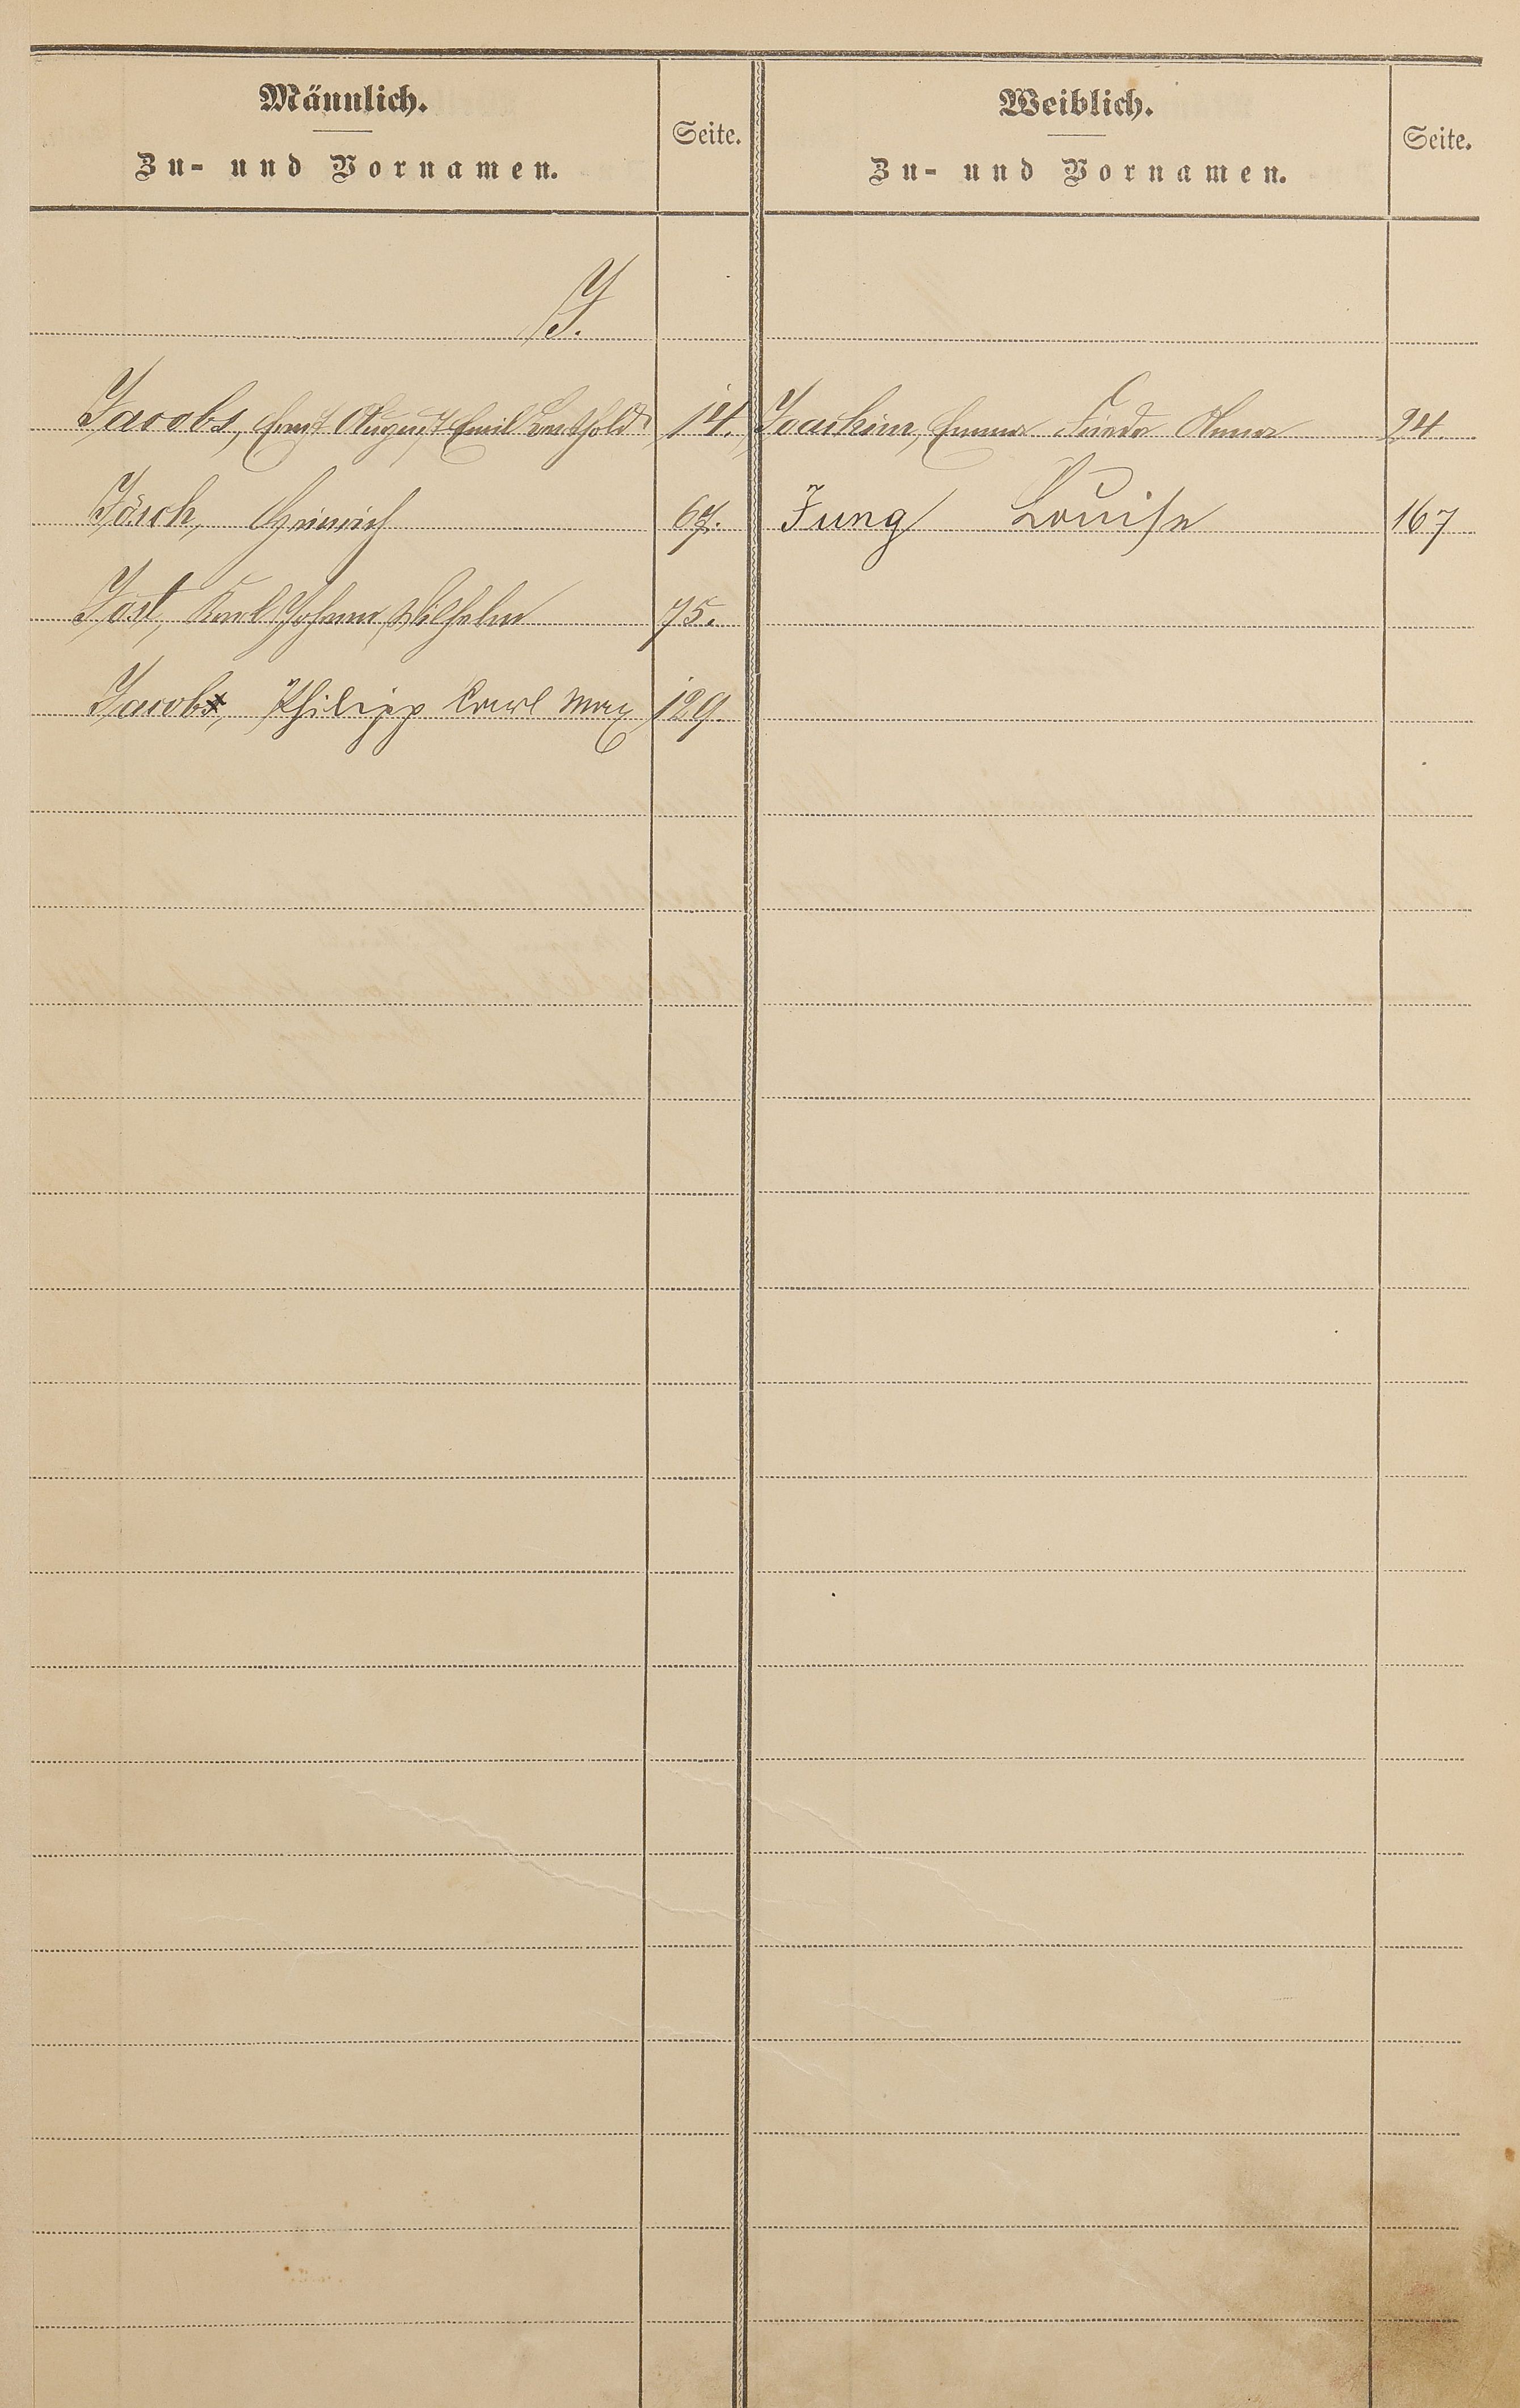 Männlich.
Zu- und Vornamen.
Seite.
Weiblich.
Zu- und Vornamen.
Seite.
J.
Jacobs, Ernst August Emil Berthold 14. Joachim, Emma Frieda Anna 24.
Jösch, Heinrich 67. Jung Louise 167
Jost, Karl Johann Wilhelm 75.
Jacob, Philipp Carl Max 129